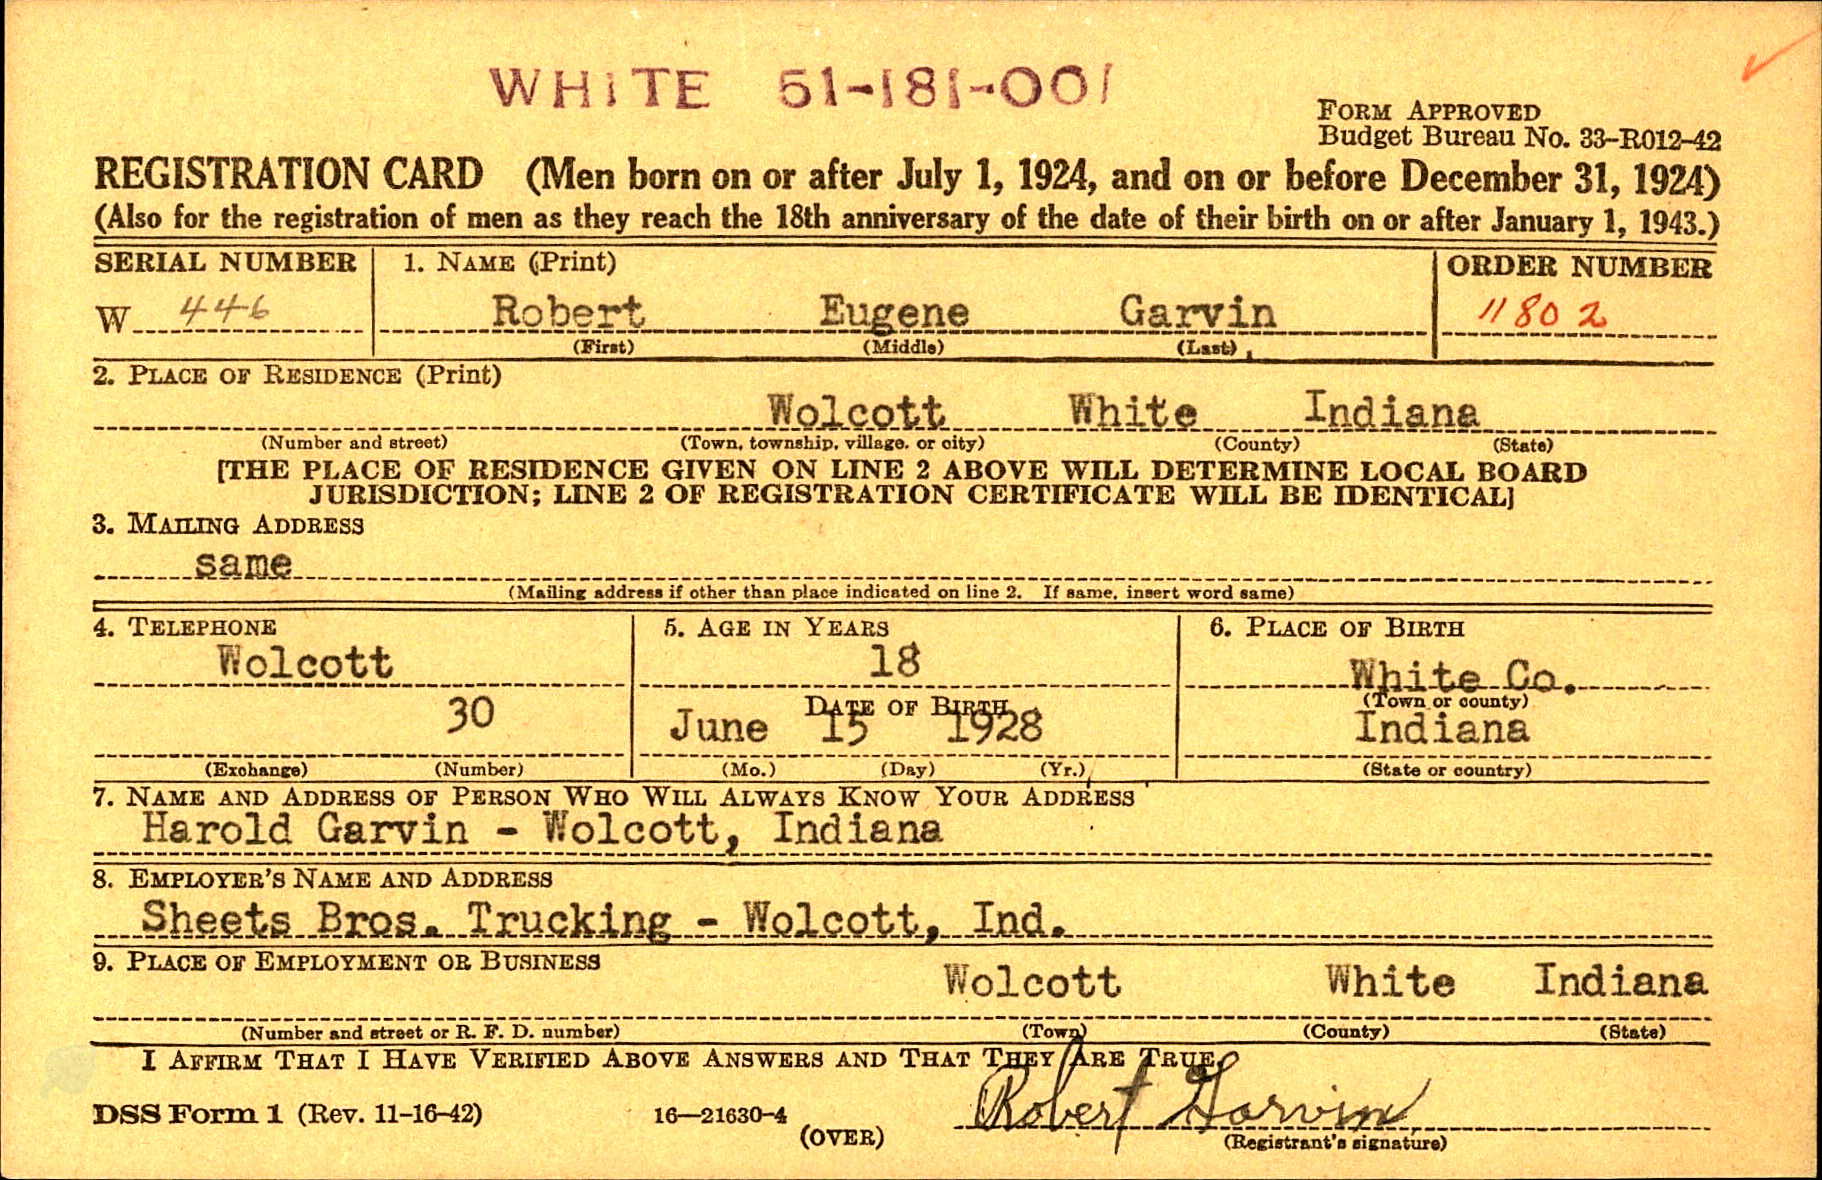 WHITE 51-181-001
FORM APPROVED
Budget Bureau No. 33-R012-42
REGISTRATION CARD (Men born on or after July 1, 1924, and on or before December 31, 1924)
(Also for the registration of men as they reach the 18th anniversary of the date of their birth on or after January 1, 1943.)
SERIAL NUMBER 1. NAME (Print) ORDER NUMBER
W 446 Robert Eugene Garvin 11802
(First) (Middle) (Last)
2. PLACE OF RESIDENCE (Print)
Wolcott White Indiana
(Number and street) (Town, township, village, or city) (County) (State)
[THE PLACE OF RESIDENCE GIVEN ON LINE 2 ABOVE WILL DETERMINE LOCAL BOARD
JURISDICTION; LINE 2 OF REGISTRATION CERTIFICATE WILL BE IDENTICAL]
3. MAILING ADDRESS
same
(Mailing address if other than place indicated on line 2. If same, insert word same)
4. TELEPHONE 5. AGE IN YEARS 6. PLACE OF BIRTH
Wolcott 18 White Co.
DATE OF BIRTH (Town or county)
30 June 15 1928 Indiana
(Exchange) (Number) (Mo.) (Day) (Yr.) (State or country)
7. NAME AND ADDRESS OF PERSON WHO WILL ALWAYS KNOW YOUR ADDRESS
Harold Garvin - Wolcott, Indiana
8. EMPLOYER'S NAME AND ADDRESS
Sheets Bros. Trucking - Wolcott, Ind.
9. PLACE OF EMPLOYMENT OR BUSINESS
Wolcott White Indiana
(Number and street or R. F. D. number) (Town) (County) (State)
I AFFIRM THAT I HAVE VERIFIED ABOVE ANSWERS AND THAT THEY ARE TRUE.
DSS Form 1 (Rev. 11-16-42) 16—21630-4 Robert Garvin
(OVER) (Registrant's signature)